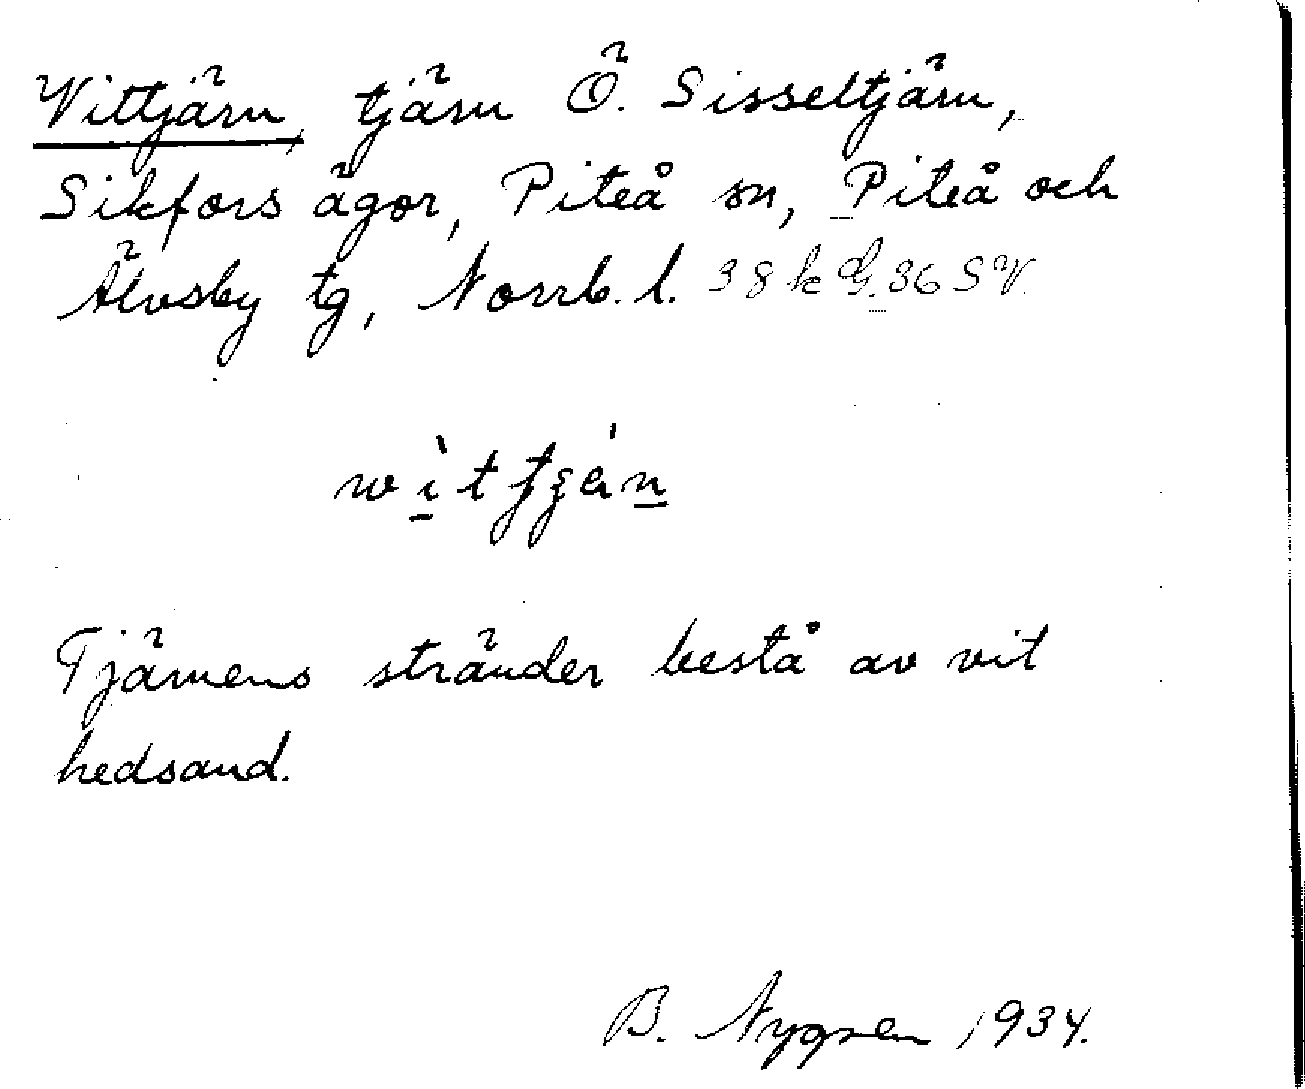 Vittjärn, tjärn Ö. Sisseltjärn,
Sikfors ägor, Piteå sn, Piteå och
Älvsby tg, Norrb. l. 38 k G. 36 SV.
Tjärnens stränder bestå av vit
hedsand.
B. Nygren 1934.